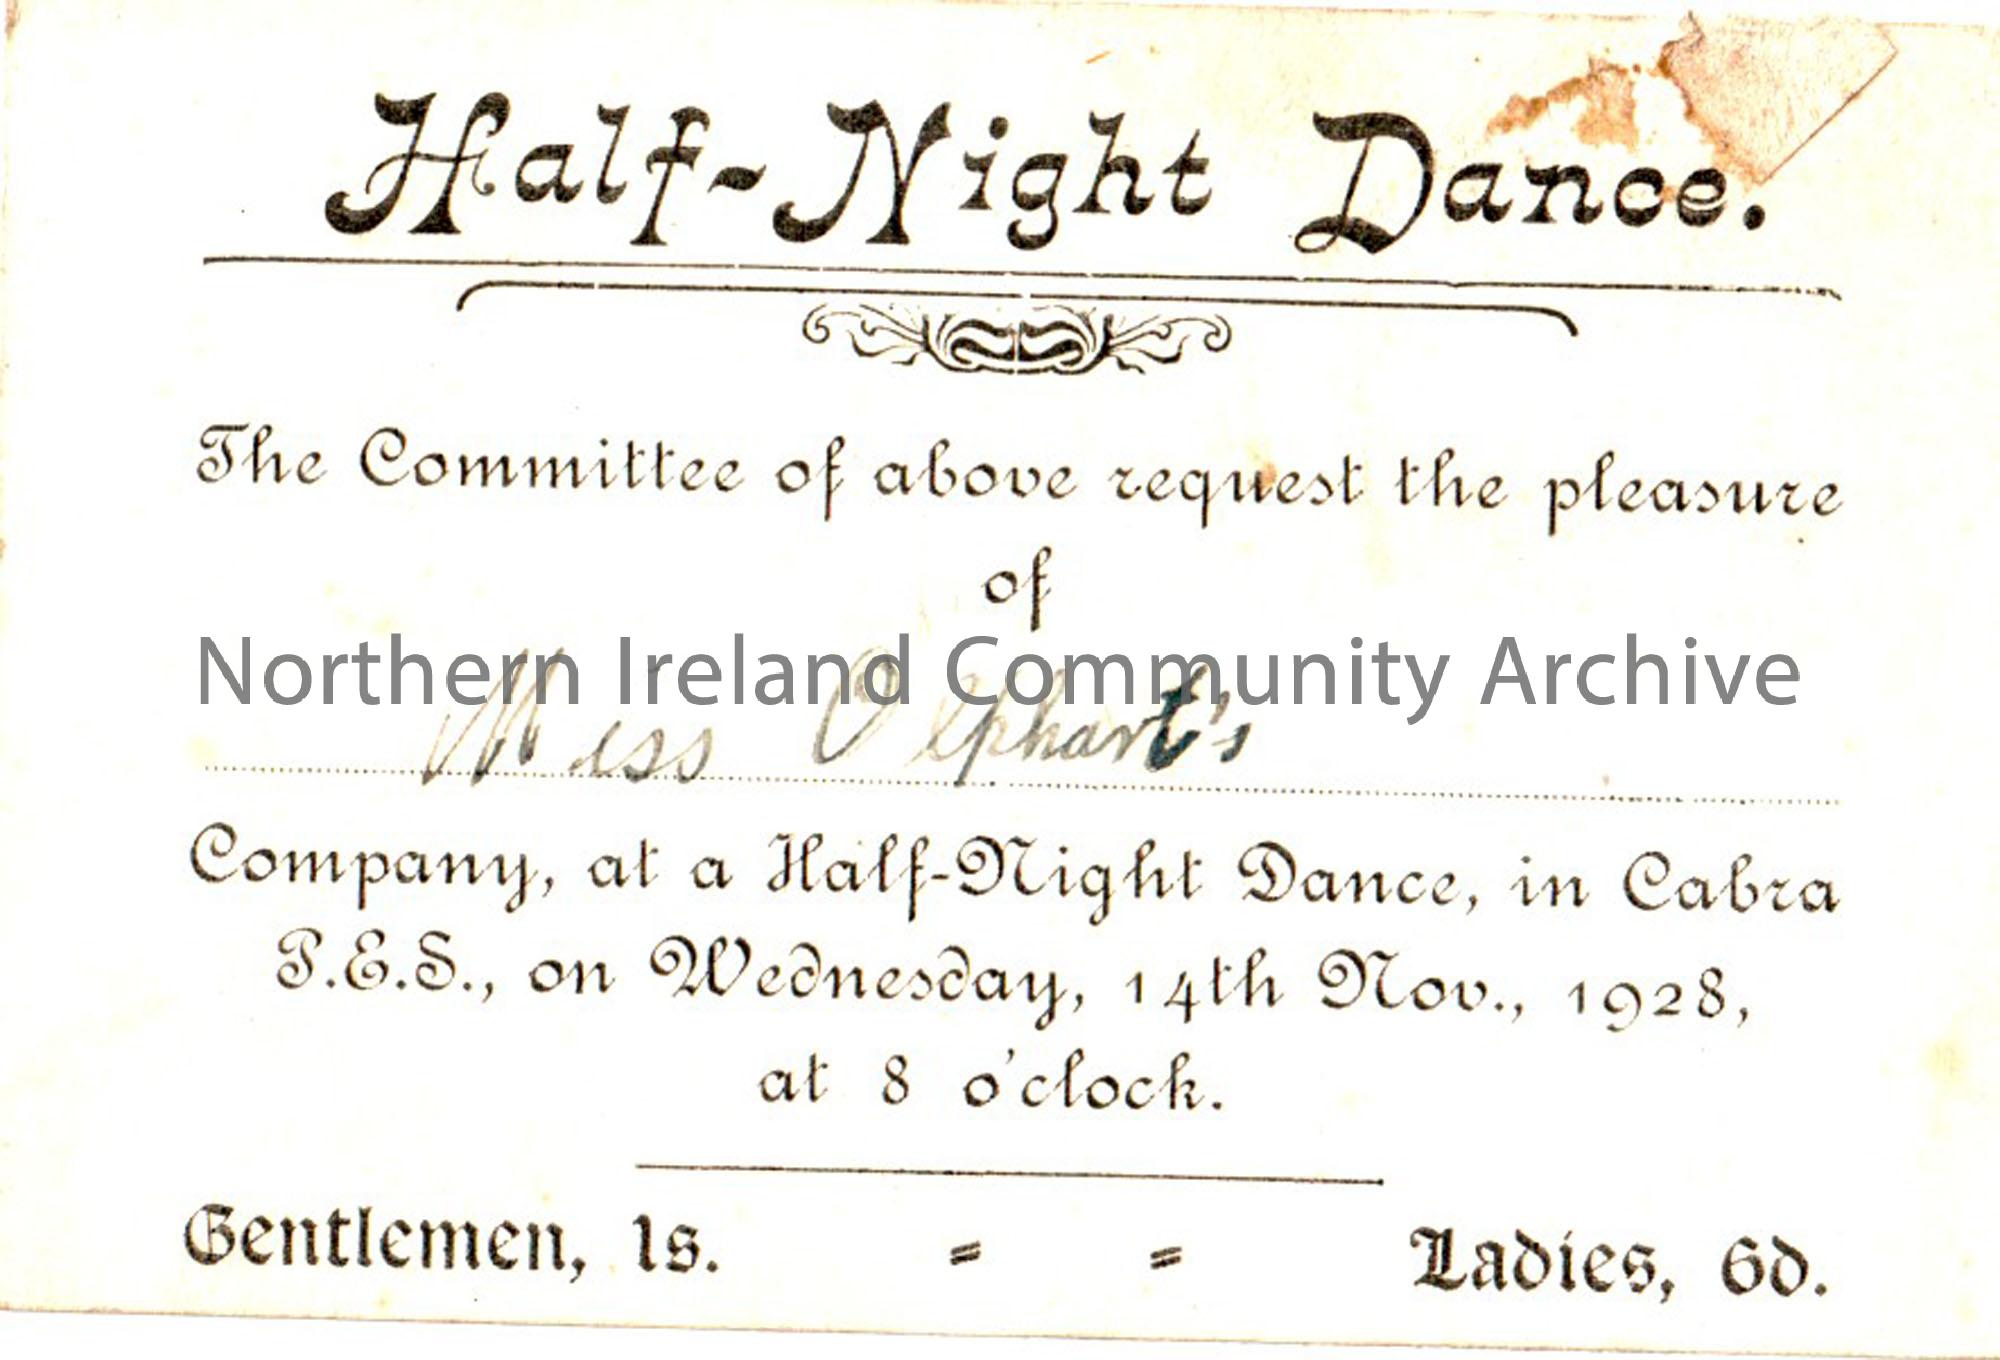 Half-Night Dance.
The Committee of above request the pleasure
of
Northern Ireland Community Archive
Miss Olphart's
Company, at a Half-Night Dance, in Cabra
P.E.S., on Wednesday, 14th Nov., 1928,
at 8 o'clock.
Gentlemen, 1s. = = Ladies, 6d.